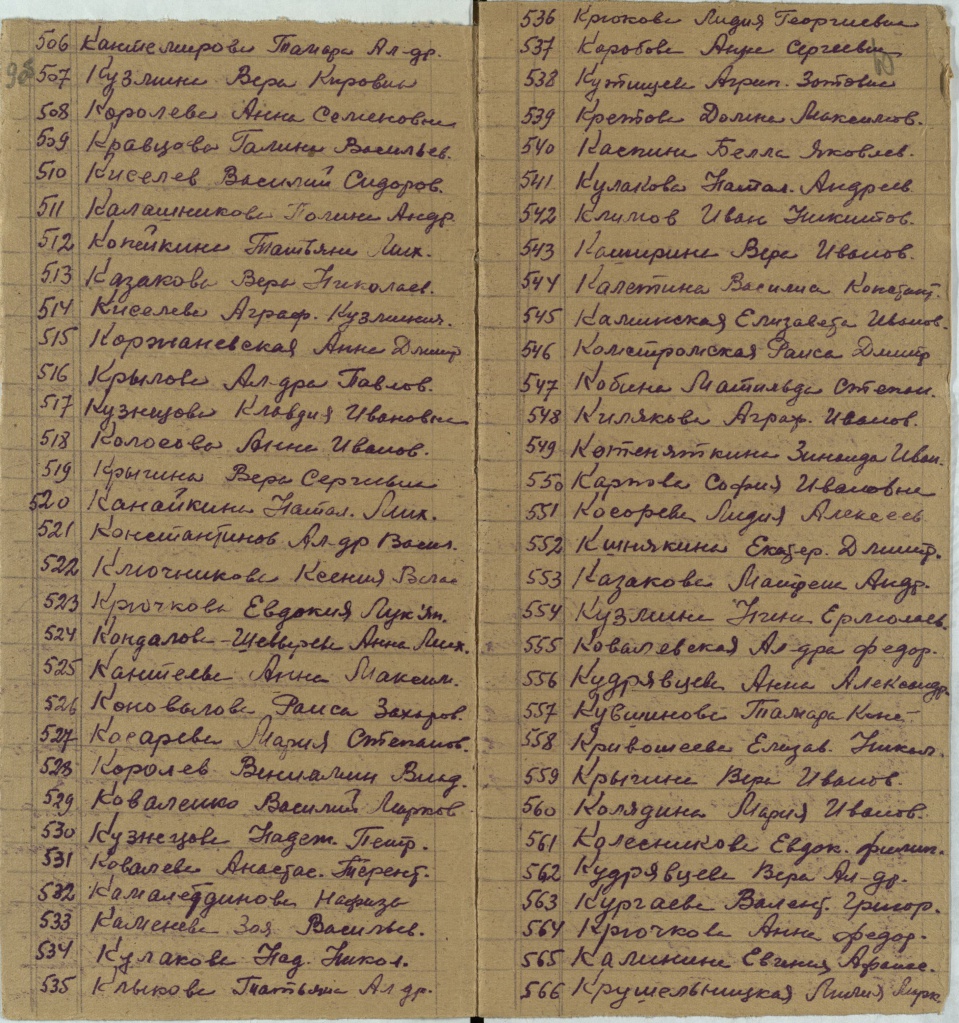 506 Кантемирова Тамара Ал-др.
507 Кузмина Вера Кировна
508 Королева Анна Семеновна
509 Кравцова Галина Васильев.
510 Киселев Василий Сидоров.
511 Калашникова Полина Андр.
512 Копейкина Татьяна Мих.
513 Казакова Вера Николаев.
514 Киселева Аграф. Кузминич.
515 Коржаневская Анна Дмитр
516 Крылова Ал-дра Павлов.
517 Кузнецова Клавдия Ивановна
518 Колосова Анна Иванов.
519 Крыгина Вера Сергевна
520 Канайкина Натал. Мих.
521 Константинов Ал-др Васил.
522 Ключникова Ксения
523 Крючкова Евдокия Лук'ян.
524 Кондалова-Шевырева Анна Мих.
525 Кантеева Анна Максим.
526 Коновалова Раиса Захаров.
527 Косарева Мария Степанов.
528 Королев Вениамин Влад.
529 Коваленко Василий Марков
530 Кузнецова Надеж. Петр.
531 Ковалева Анастас. Терент.
532 Камалетдинова Нафиза
533 Каменева Зоя Васильев.
534 Кулакова Над. Никол.
535 Клыкова Татьяна Ал др.
536 Крюкова Лидия Георгиевна
537 Коробова Анна Сергеевна
538 Кутищева Агрип. Зотовна
539 Кретова Домна Максимов.
540 Каспина Белла Яковлев.
541 Кулакова Натал. Андреев.
542 Климов Иван Никитов.
543 Каширина Вера Иванов.
544 Калетина Василиа Констант.
545 Калинская Елизавета Иванов.
546 Костромская Раиса Дмитр
547 Кобина Матильда Степан.
548 Килякова Аграф. Иванов.
549 Котеняткина Зинаида Иван.
550 Карпова София Ивановна
551 Косарева Лидия Алексеев
552 Кшнякина Екатер. Дмитр.
553 Казакова Андр.
554 Кузмина Нина Ермолаев.
555 Ковалевская Ал-дра федор.
556 Кудрявцева Анна Александр.
557 Кувшинова Тамара Конс-
558 Кривошеева Елизав. Никол.
559 Крыгина Вера Иванов.
560 Колядина Мария Иванов.
561 Колесникова Евдок. филип.
562 Кудрявцева Вера Ал-др.
563 Кургаева Валент. Григор.
564 Крючкова Анна федор.
565 Калинина Евгения Афанас.
566 Крушельницкая Лилия Марк